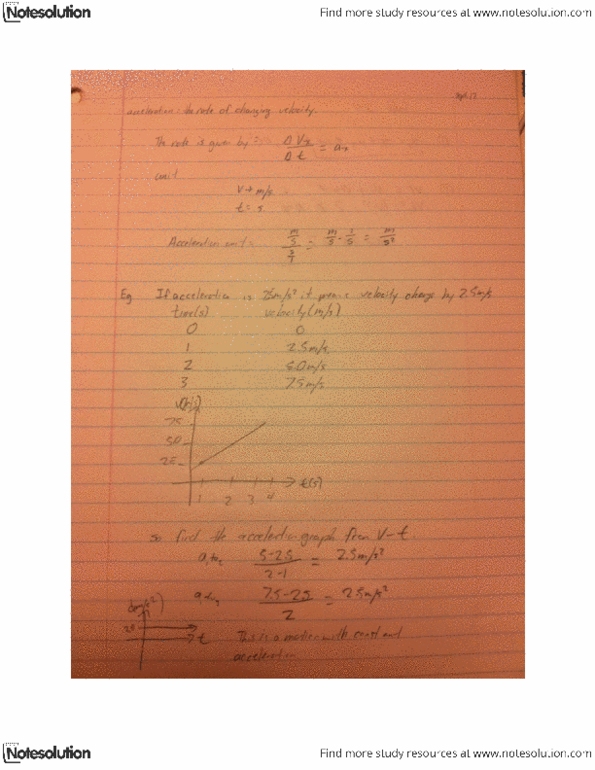 Notesolution
Find more study resources at www.notesolution.com
Sept 17
acceleration: the rate of changing velocity.
The rate is given by = ΔVx/Δt = ax
unit
V → m/s
t = s
Acceleration unit = (m/s)/(s/1) = m/s · 1/s = m/s²
Eg If acceleration is 2.5m/s² it means velocity change by 2.5m/s
time(s) velocity(m/s)
0 0
1 2.5m/s
2 5.0m/s
3 7.5m/s
7.5
5.0
2.5
t(s)
1 2 3 4
so find the acceleration graph from V-t.
(5-2.5)/(2-1) = 2.5m/s²
(7.5-2.5)/2 = 2.5m/s²
2.5
t
This is a motion with constant
acceleration
Notesolution
Find more study resources at www.notesolution.com